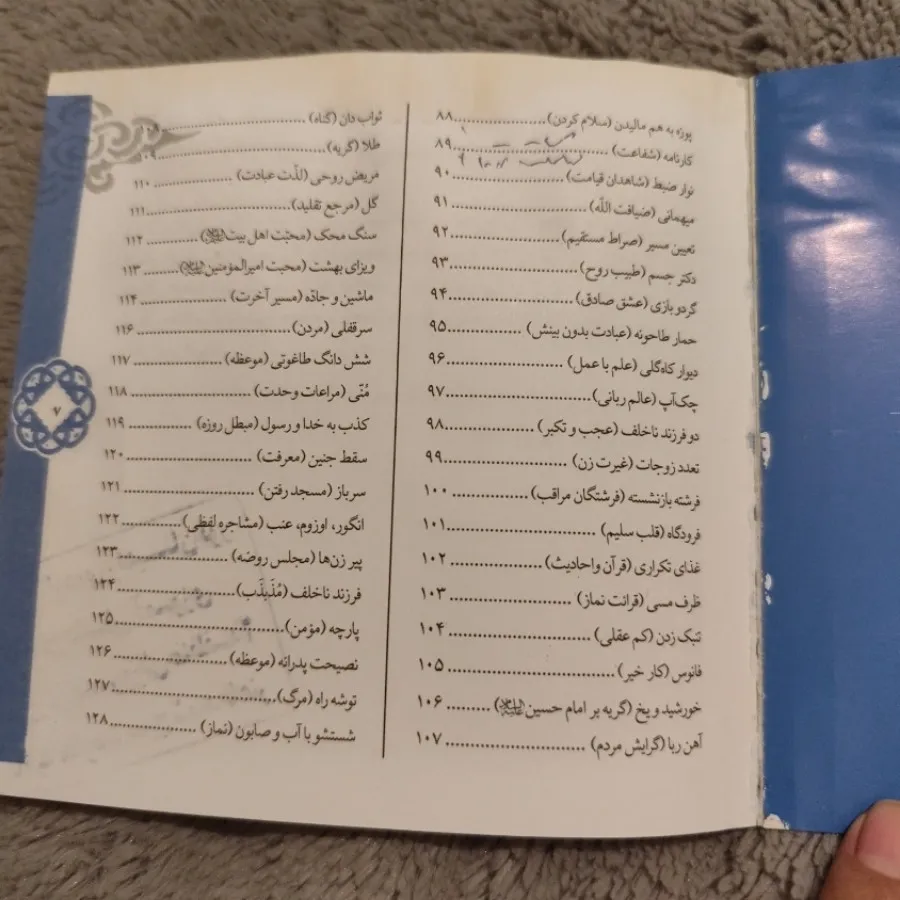 پوزه به هم مالیدن (سلام کردن)....................۸۸
کارنامه (شفاعت) ....................۸۹
نوار ضبط (شاهدان قیامت) ....................۹۰
میهمانی (ضیافت الله) ....................۹۱
تعیین مسیر (صراط مستقیم) ....................۹۲
دکتر جسم (طبیب روح) ....................۹۳
گردو بازی (عشق صادق) ....................۹۴
حمار طاحونه (عبادت بدون بینش) ....................۹۵
دیوار کاه‌گلی (علم با عمل) ....................۹۶
چک‌آپ (عالم ربانی)....................۹۷
دو فرزند ناخلف (عجب و تکبر) ....................۹۸
تعدد زوجات (غیرت زن) ....................۹۹
فرشته بازنشسته (فرشتگان مراقب) ....................۱۰۰
فرودگاه (قلب سلیم) ....................۱۰۱
غذای تکراری (قرآن واحادیث) ....................۱۰۲
ظرف مسی (قرائت نماز) ....................۱۰۳
تنبک زدن (کم عقلی) ....................۱۰۴
فانوس (کار خیر) ....................۱۰۵
خورشید و یخ (گریه بر امام حسین علیه‌السلام) .........۱۰۶
آهن ربا (گرایش مردم) ....................۱۰۷
ثواب دان (گناه) ....................
طلا (گریه)....................۱۰۹
مریض روحی (لذّت عبادت) ....................۱۱۰
گل (مرجع تقلید)....................۱۱۱
سنگ محک (محبّت اهل بیت) ............۱۱۲
ویزای بهشت (محبت امیرالمؤمنین)..........۱۱۳
ماشین و جادّه (مسیر آخرت) ....................۱۱۴
سرقفلی (مردن)....................۱۱۶
شش دانگ طاغوتی (موعظه) ....................۱۱۷
مُنّی (مراعات وحدت) ....................۱۱۸
کذب به خدا و رسول (مبطل روزه) ..............۱۱۹
سقط جنین (معرفت) ....................۱۲۰
سرباز (مسجد رفتن) ....................۱۲۱
انگور، اوزوم، عنب (مشاجره لفظی) .............۱۲۲
پیر زن‌ها (مجلس روضه) ....................۱۲۳
فرزند ناخلف (مُذَبذَب)....................۱۲۴
پارچه (مؤمن)....................۱۲۵
نصیحت پدرانه (موعظه) ....................۱۲۶
توشه راه (مرگ)....................۱۲۷
شستشو با آب و صابون (نماز) ................۱۲۸
۷